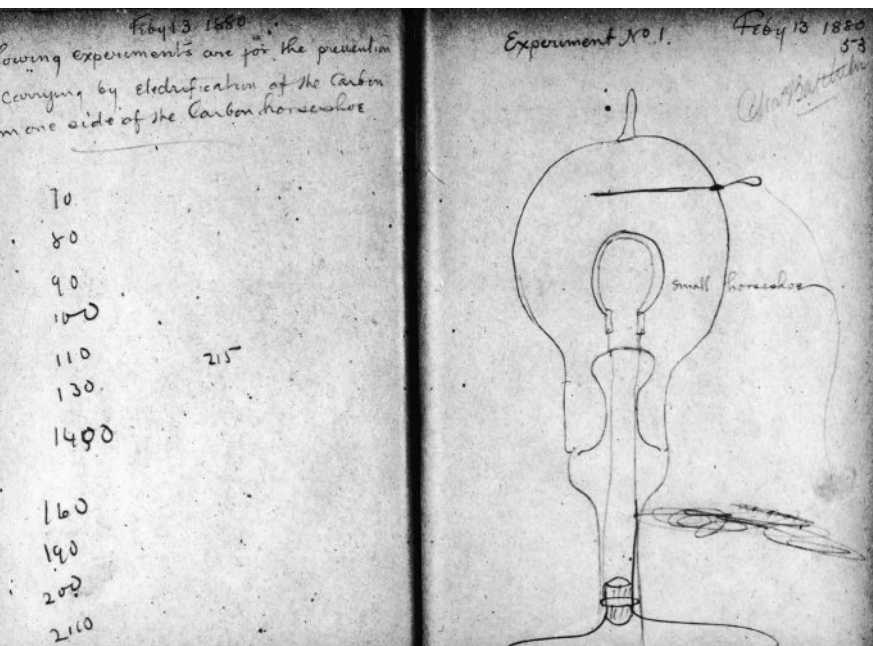 Feby 13 1880
lowing experiments are for the prevention
Carrying by electrification of the Carbon
m one side of the Carbon horseshoe
70
80
90
100
110 215
130
1400
160
190
200
2110
Experiment No 1. Feby 13 1880
53
small horseshoe